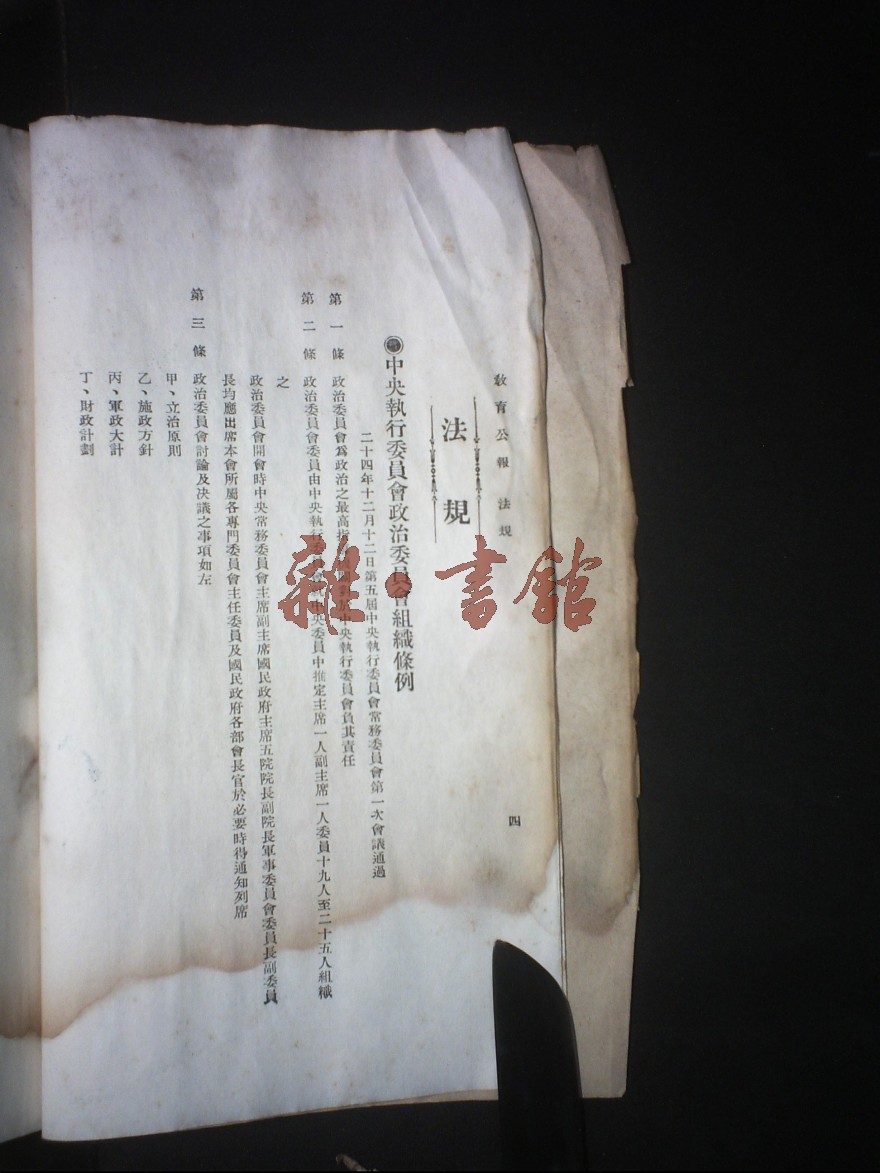 教育公報 法規
四
法規
中央執行委員會政治委員會組織條例
二十四年十二月十二日第五屆中央執行委員會常務委員會第一次會議通過
第一條 政治委員會爲政治之最高指 中央執行委員會負其責任
第二條 政治委員會委員由中央執行委員會 中央委員中推定主席一人副主席一人委員十九人至二十五人組織
之
政治委員會開會時中央常務委員會主席副主席國民政府主席五院院長副院長軍事委員會委員長副委員
長均應出席本會所屬各專門委員會主任委員及國民政府各部會長官於必要時得通知列席
第三條 政治委員會討論及決議之事項如左
甲、立治原則
乙、施政方針
丙、軍政大計
丁、財政計劃
雜·書館